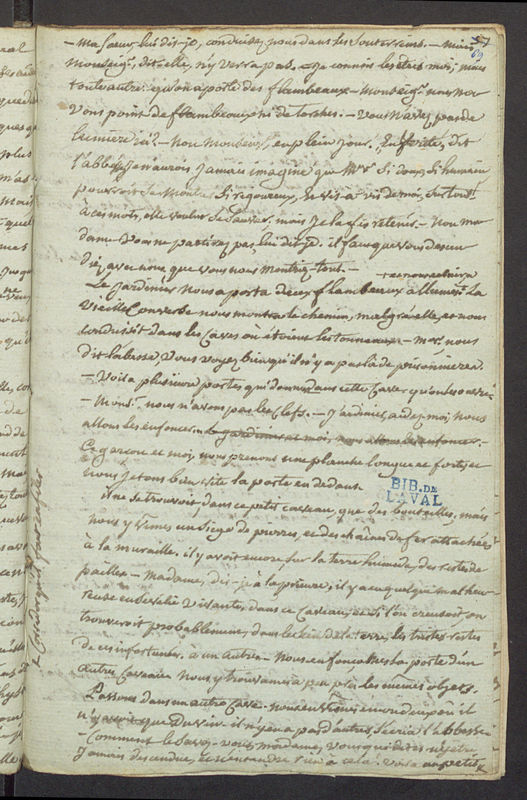 57
69
- Ma soeur, lui dis-je, conduisez nous dans les souterreins. - Mais
Monseigr, dit elle, n'y verra pas. - Je connois les êtres moi, mais
tout autre. qu'on apporte des flambeaux - Monseigr nous n'a-
vons point de flambeaux ni de torches. - Vous n'avez pas de
lumiere ici? - Non Monseigr, en plein jour. dit
l'abbesse, je n'aurois jamais imaginé que Mgr si doux, si humain
pourroit se montrer si rigoureux, vis-à-vis de moi, surtout!
à ces mots, elle voulut se sauver. mais je la fis retenir. - Non ma-
dame vous ne partirez pas, lui dit-je. il faut que vous
avec nous, que vous nous montriez tout. -
Le jardinier nous apporta deux flambeaux allumés. La
vieille Converse nous montra le chemin, malgré elle, et nous
conduisit dans les caves où étoient les tonneaux - Mgr nous
dit l'abesse vous voyez bien qu'il n'y a pas là de prisonnieres.
- Voilà plusieurs portes qui donnent dans cette Cave, qu'on les ouvre
- Monsr. nous n'avons pas les clefs. - Jardinier, aidez moi, nous
allons les enfoncer.
Ce garçon et moi, nous prenons une planche longue et forte, et
nous jetons bien vite la porte en dedans.
BIB. DE
LAVAL
il ne se trouvoit dans ce petit caveau, que des bouteilles, mais
nous y vîmes un siege de pierres, et des chaines de fer attachées
à la muraille. il y avoit encore sur la terre humide, des restes de
paille - Madame, dis-je à la prieure, il y a eu quelque malheu-
reuse ensevelie vivante, dans ce Caveau, et si l'on creusoit, on
trouveroit probablement, dans le sein de la terre, les tristes restes
de ces infortunées. à un autre. - Nous enfonçames la porte d'un
autre Caveau. Nous y trouvames à peu près les mêmes objets.
Passons dans un autre Cave -
n'y que du vin. il n'y en a pas d'autres, s'écria l'abbesse
- Comment le savez-vous, madame, vous qui dites n'y être
jamais descendue, et n'entendre rien à cela. voilà un petit